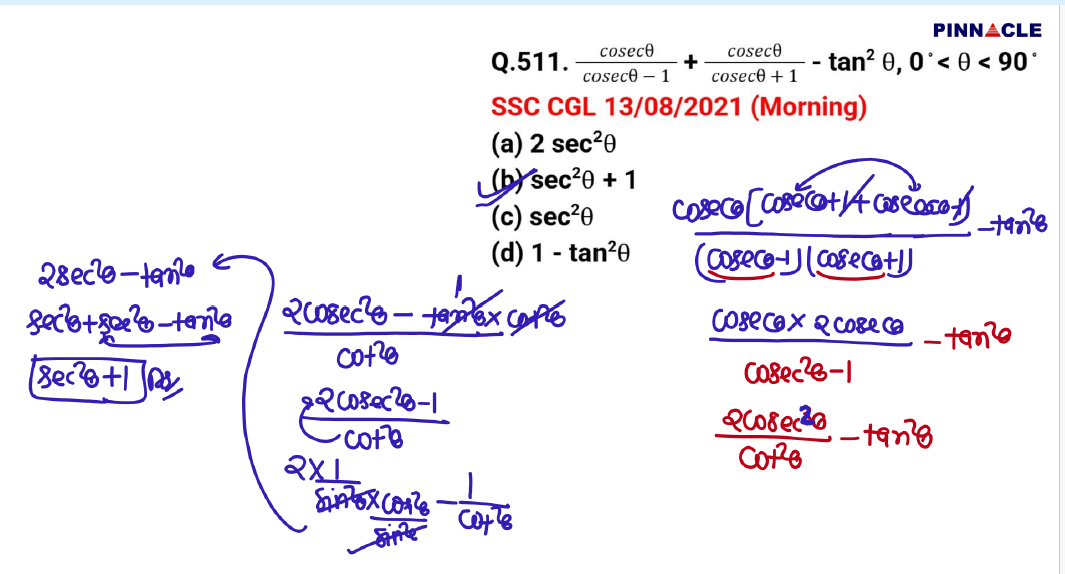 PINNACLE
Q.511. cosecθ/(cosecθ − 1) + cosecθ/(cosecθ + 1) - tan² θ, 0°< θ < 90°
SSC CGL 13/08/2021 (Morning)
(a) 2 sec²θ
(b) sec²θ + 1
(c) sec²θ
(d) 1 - tan²θ
cosecθ[cosecθ+1+cosecθ-1]/(cosecθ-1)(cosecθ+1) -tan²θ
cosecθ x 2cosecθ/cosec²θ-1 -tan²θ
2cosec²θ/cot²θ -tan²θ
2cosec²θ - tan²θ x cot²θ/cot²θ
1
2cosec²θ-1/cot²θ
2x1/sin²θ x cos²θ/sin²θ - 1/cot²θ
2sec²θ-tan²θ
sec²θ+sec²θ-tan²θ
sec²θ+1 Ans